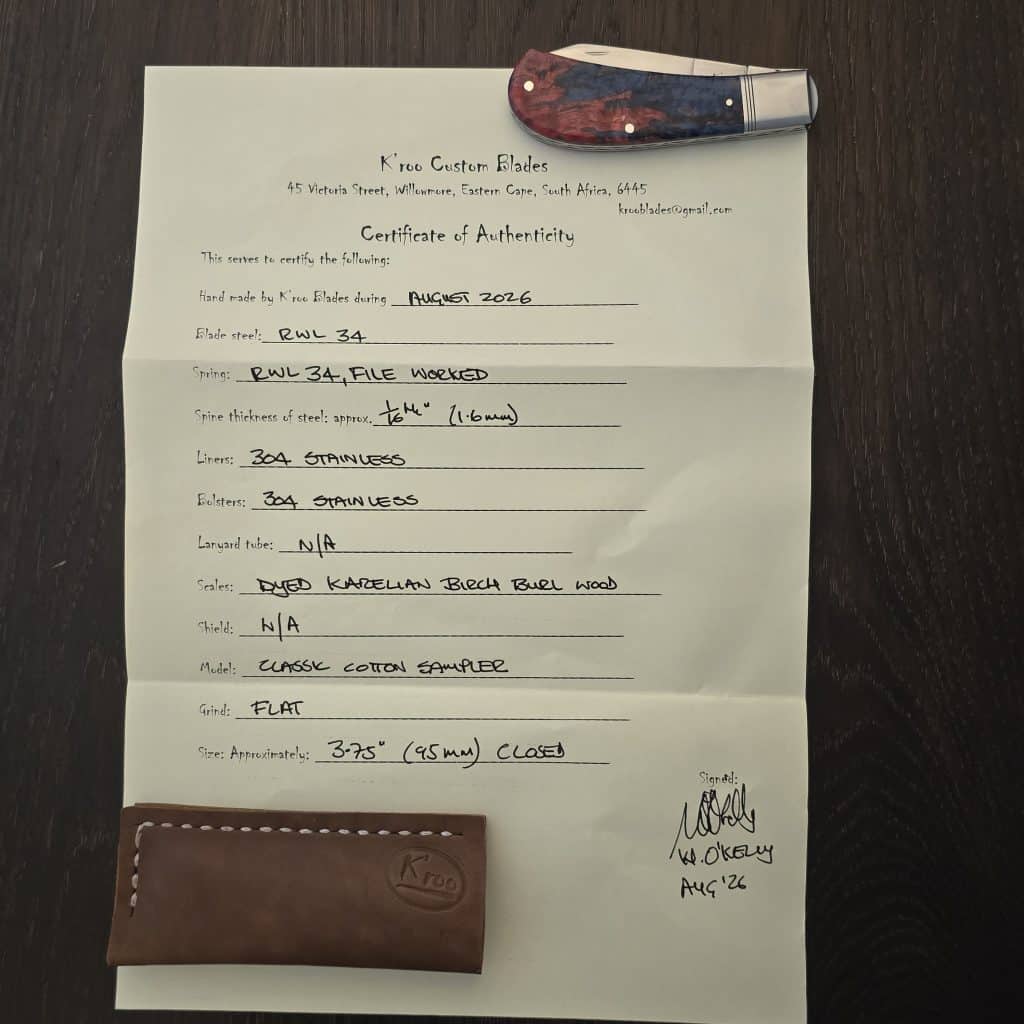 K'roo Custom Blades
45 Victoria Street, Willowmore, Eastern Cape, South Africa, 6445
krooblades@gmail.com
Certificate of Authenticity
This serves to certify the following:
Hand made by K'roo Blades during AUGUST 2026
Blade steel: RWL 34
Spring: RWL 34, FILE WORKED
Spine thickness of steel: approx. 1/16" (1.6mm)
Liners: 304 STAINLESS
Bolsters: 304 STAINLESS
Lanyard tube: N/A
Scales: DYED KARELIAN BIRCH BURL WOOD
Shield: N/A
Model: CLASSIC COTTON SAMPLER
Grind: FLAT
Size: Approximately: 3.75" (95mm) CLOSED
Signed:
O'KELLY
AUG '26
K'roo